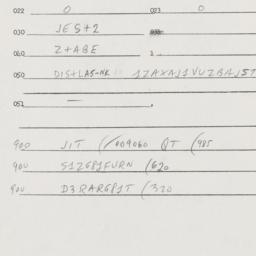 022 0 023 0
030 JES+2
060 Z+ABE
050 DIS+LAS-NK 1ZAXAJ1VUZBAJ51
051 —
900 JIT (/009060 QT (985
900 S1Z681FURN (620
900 D3RARG81T (320